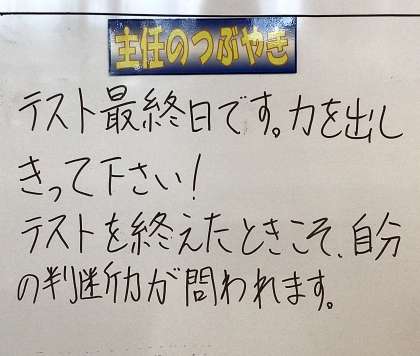 主任のつぶやき
テスト最終日です。力を出し
きって下さい!
テストを終えたときこそ、自分
の判断力が問われます。